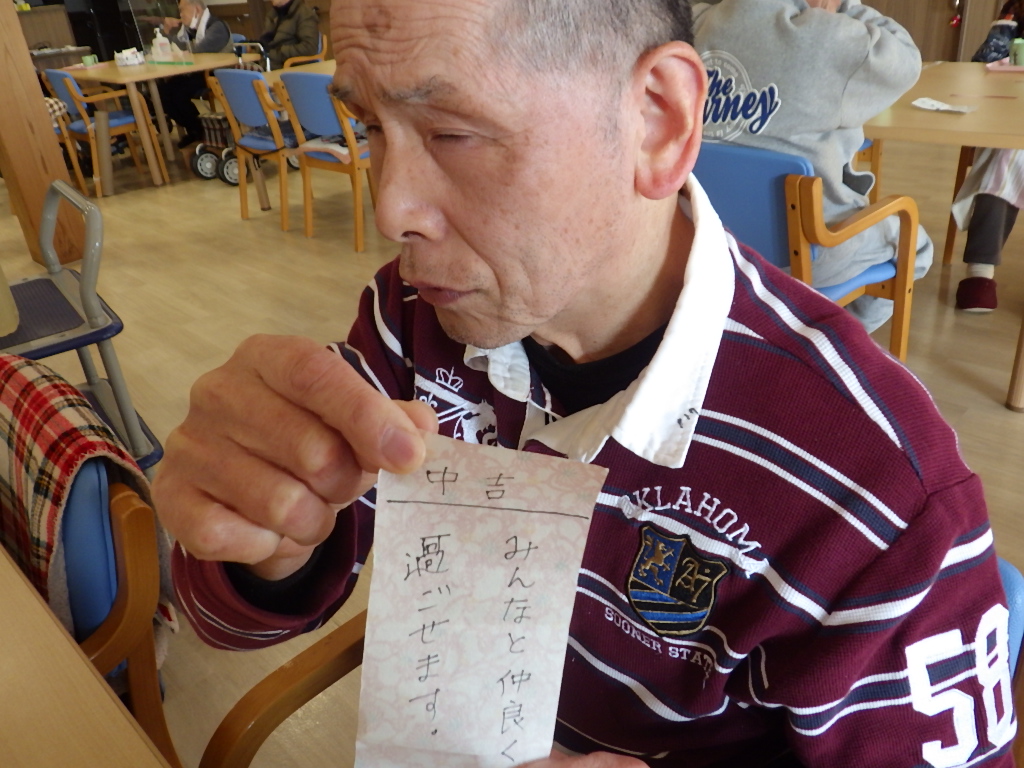 中吉
みんなと仲良く
過ごせます。
The
rney
OKLAHOMA
A7
SOONER STAT
58